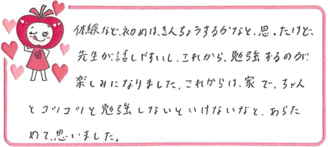 体験など、初めは、きんちょうするかなと、思ったけど、
先生が話しやすいし、これから、勉強するのが、
楽しみになりました。これからは、家で、ちゃん
とコツコツと勉強しないといけないなと、あらた
めて、思いました。